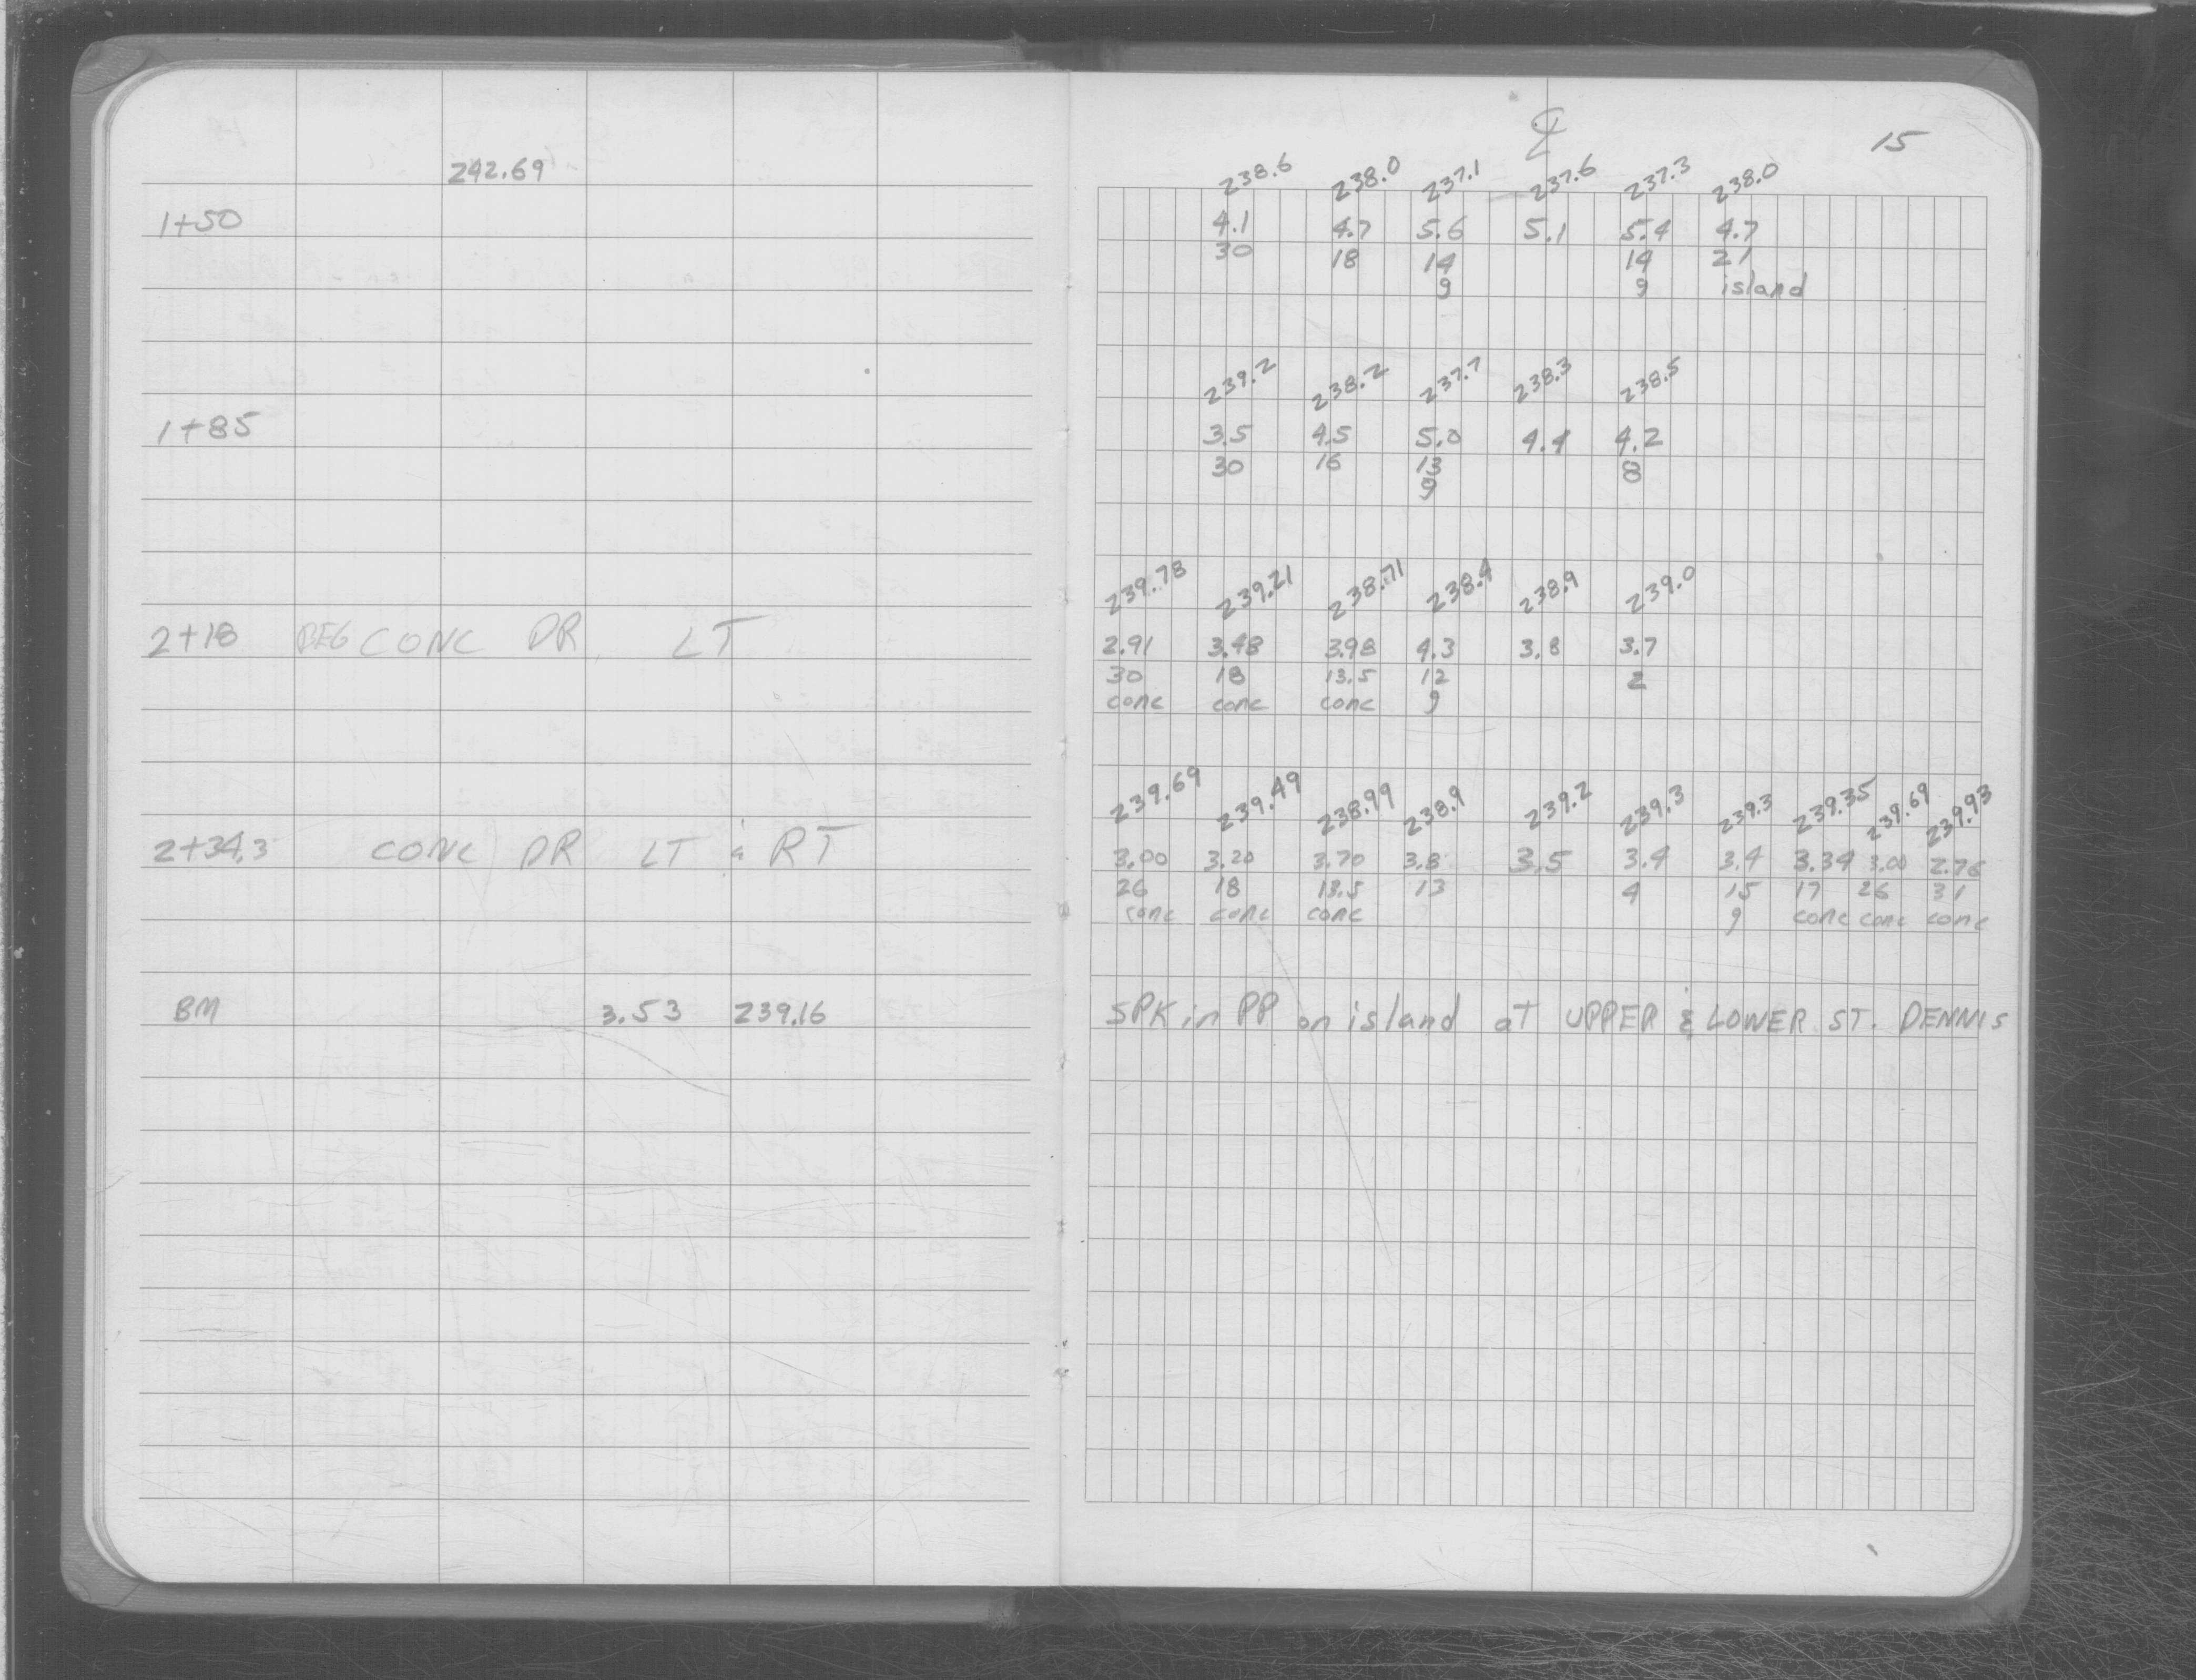 ℄ 15
242.69 238.6 238.0 237.1 237.6 237.3 238.0
1+50 4.1 4.7 5.6 5.1 5.4 4.7
30 18 14 14 21
9 9 island
239.2 238.2 237.7 238.3 238.5
1+85 3.5 4.5 5.0 4.4 4.2
30 16 13 8
9
239.78 239.21 238.71 238.4 238.9 239.0
2+18 BEG CONC DR LT 2.91 3.48 3.98 4.3 3.8 3.7
30 18 13.5 12 2
conc conc conc 9
239.69 239.49 238.99 238.9 239.2 239.3 239.3 239.35 239.69 239.93
2+34.3 CONC DR LT & RT 3.00 3.20 3.70 3.8 3.5 3.4 3.4 3.34 3.00 2.76
26 18 13.5 13 4 15 17 26 31
conc conc conc 9 conc conc conc
BM 3.53 239.16 SPK in PP on island at UPPER & LOWER ST. DENNIS